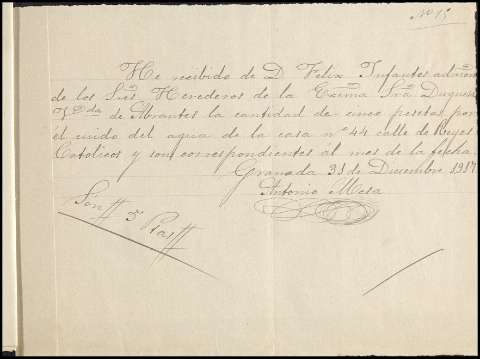 Nº 15
He recibido de D Felix Infantes
de los Sres Herederos de la Excma Sra Duquesa
Vda de Abrantes la cantidad de cinco pesetas por
el cuido del agua de la casa nº 44 calle de Reyes
Catolicos y son correspondientes al mes de la fecha
Granada 31 de Diciembre 1917
Antonio Mesa
Son 5 Ptas